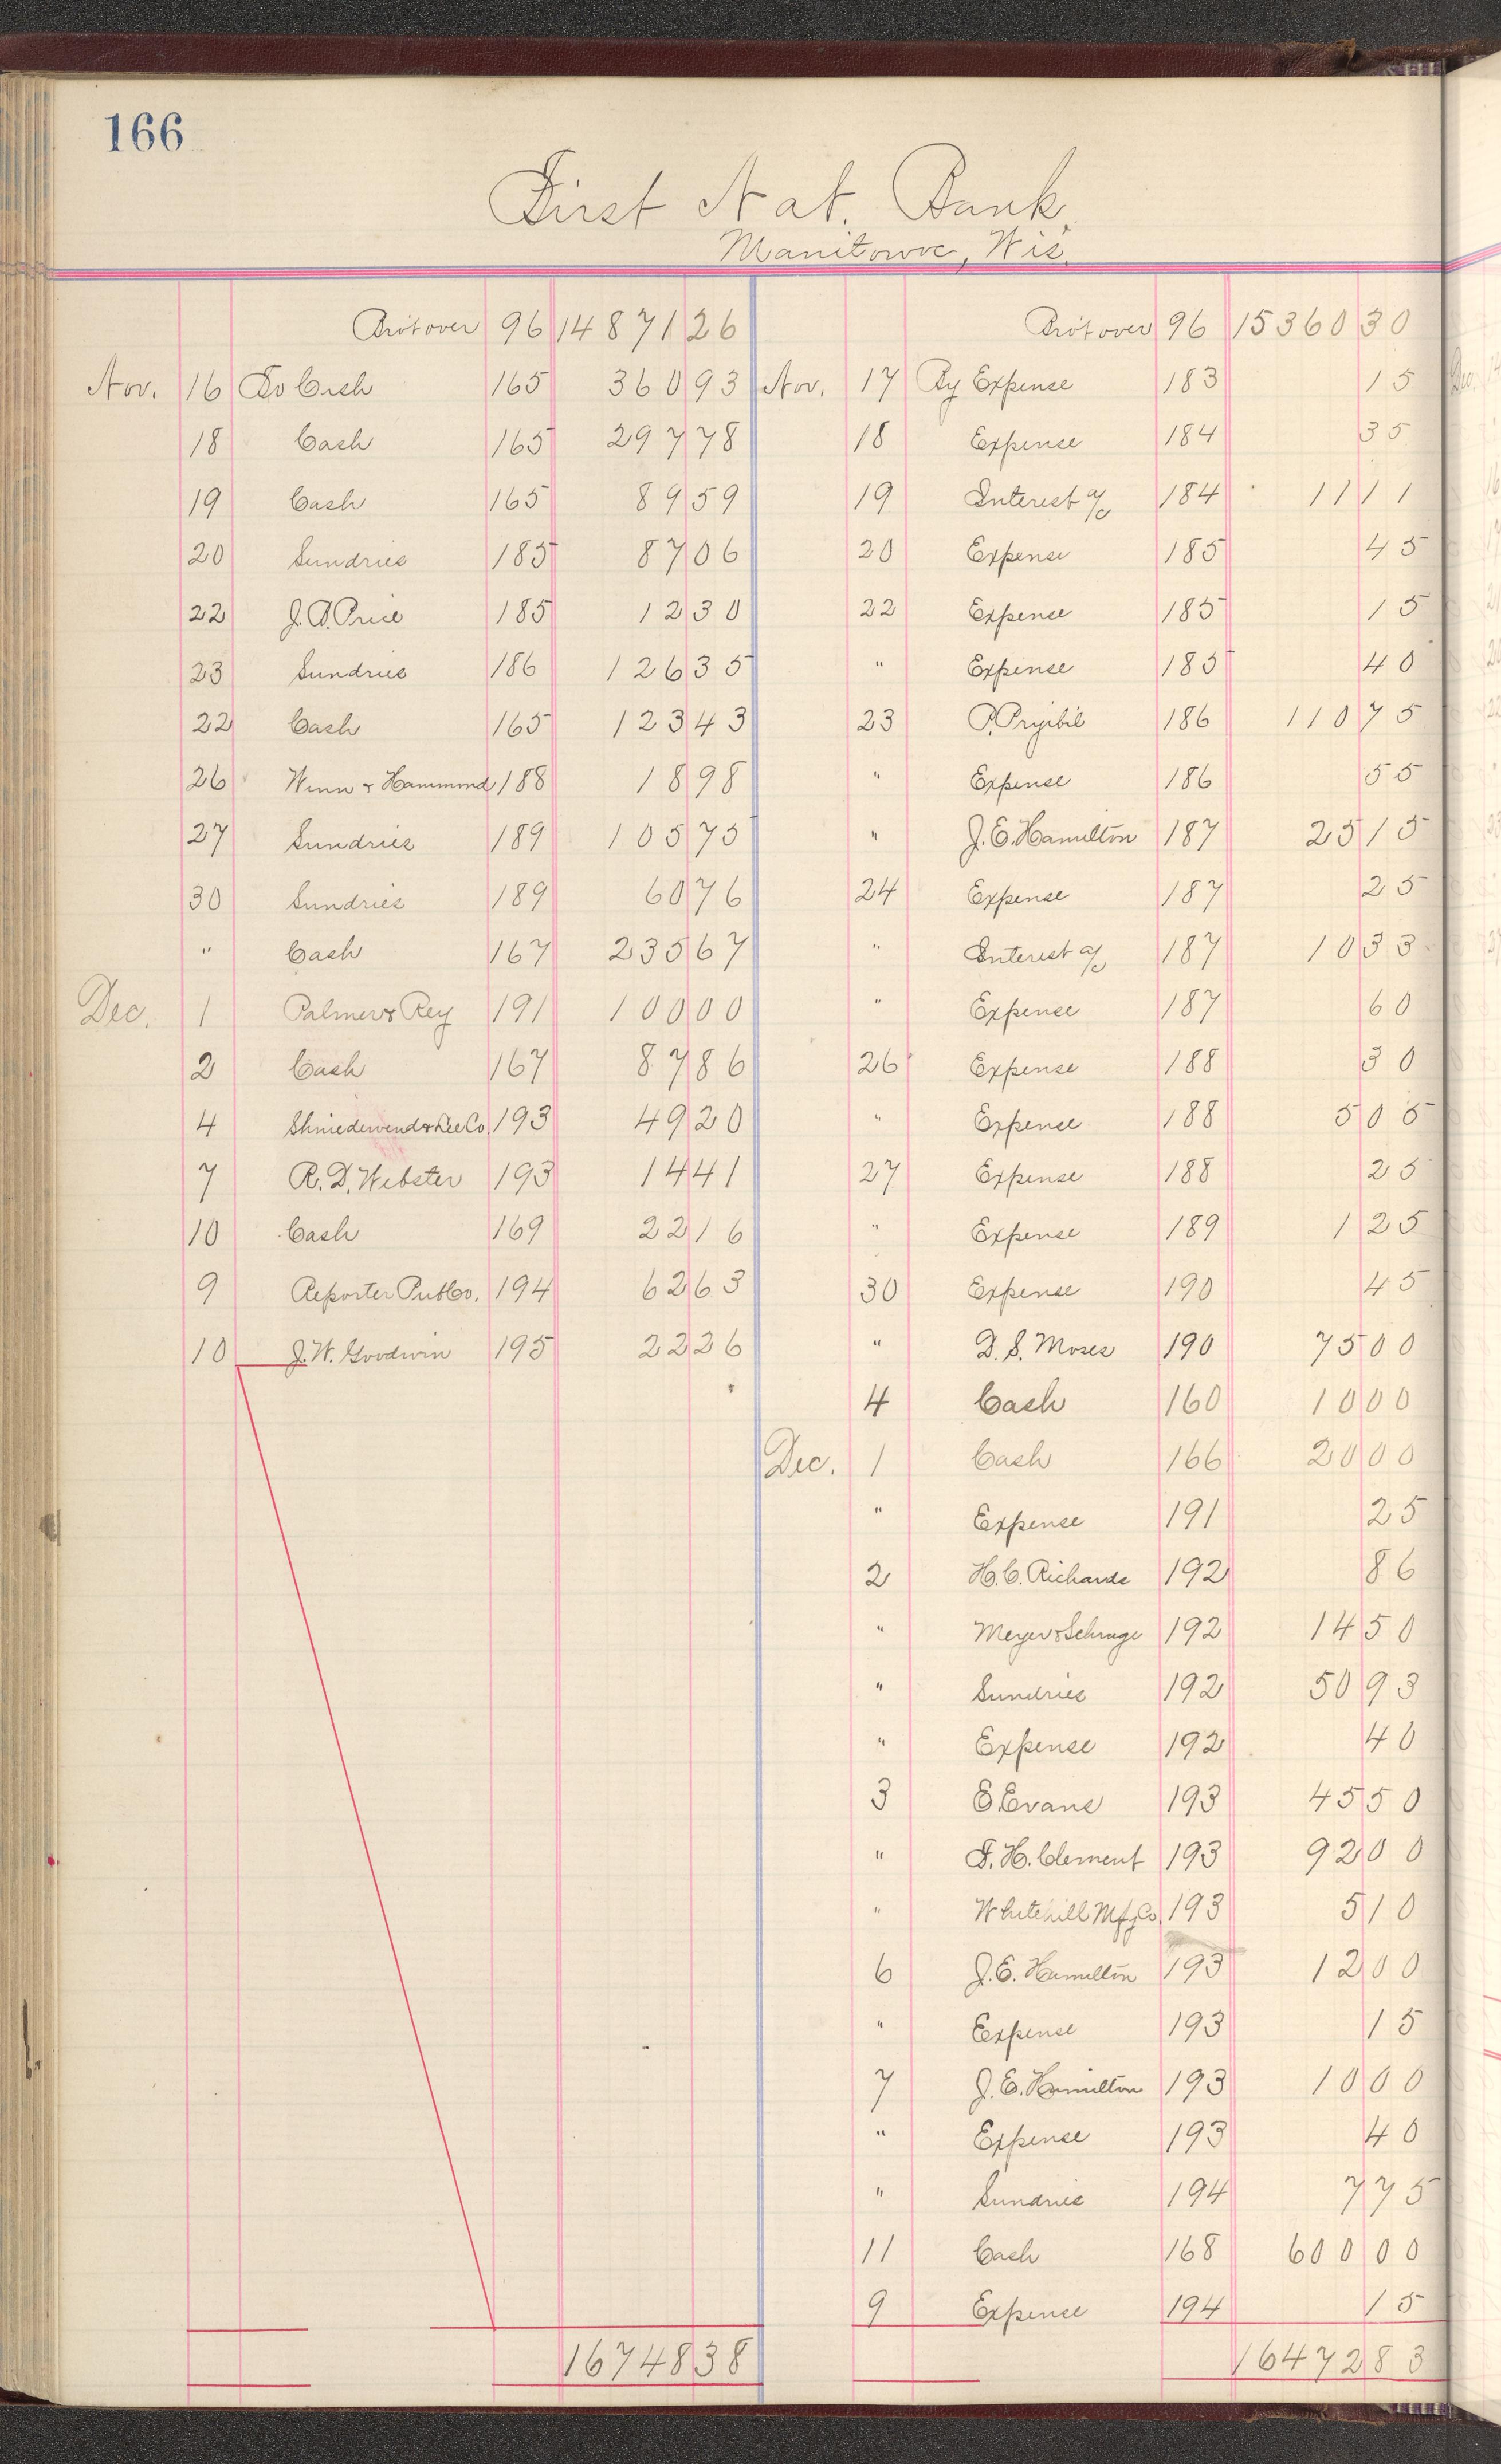 166
First Nat. Bank.
Manitowoc, Wis.
Bro't over 96 14871 26
Nov. 16 To Cash 165 360 93
18 Cash 165 297 78
19 Cash 165 89 59
20 Sundries 185 87 06
22 J.D. Price 185 12 30
23 Sundries 186 126 35
22 Cash 165 123 43
26 Winn & Hammond 188 18 98
27 Sundries 189 105 75
30 Sundries 189 60 76
" Cash 167 235 67
Dec. 1 Palmer & Rey 191 100 00
2 Cash 167 87 86
4 Shniedewend & Lee Co. 193 49 20
7 R.D. Webster 193 14 41
10 Cash 169 22 16
9 Reporter Pub Co. 194 62 63
10 J.W. Goodwin 195 22 26
16748 38
Bro't over 96 15360 30
Nov. 17 By Expense 183 15
18 Expense 184 35
19 Interest a/c 184 11 11
20 Expense 185 45
22 Expense 185 15
" Expense 185 40
23 P. Pryibil 186 110 75
" Expense 186 55
" J.E. Hamilton 187 25 15
24 Expense 187 25
" Interest a/c 187 10 33
" Expense 187 60
26 Expense 188 30
" Expense 188 5 05
27 Expense 188 25
" Expense 189 1 25
30 Expense 190 45
" D.S. Moses 190 75 00
4 Cash 160 10 00
Dec. 1 Cash 166 20 00
" Expense 191 25
2 H.C. Richards 192 86
" Meyer & Schrage 192 14 50
" Sundries 192 50 93
" Expense 192 40
3 E. Evans 193 45 50
" F.H. Clement 193 92 00
" Whitehill Mfg Co. 193 5 10
6 J.E. Hamilton 193 12 00
" Expense 193 15
7 J.E. Hamilton 193 10 00
" Expense 193 40
" Sundries 194 7 75
11 Cash 168 600 00
9 Expense 194 15
16472 83